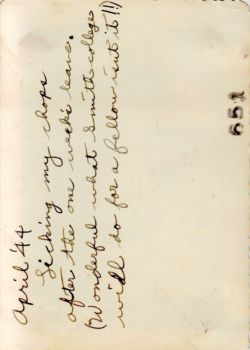 April '44
Licking my chops
after the one weeks leave.
(Wonderful what Smith college
will do for a fellow isn't it!!)
651